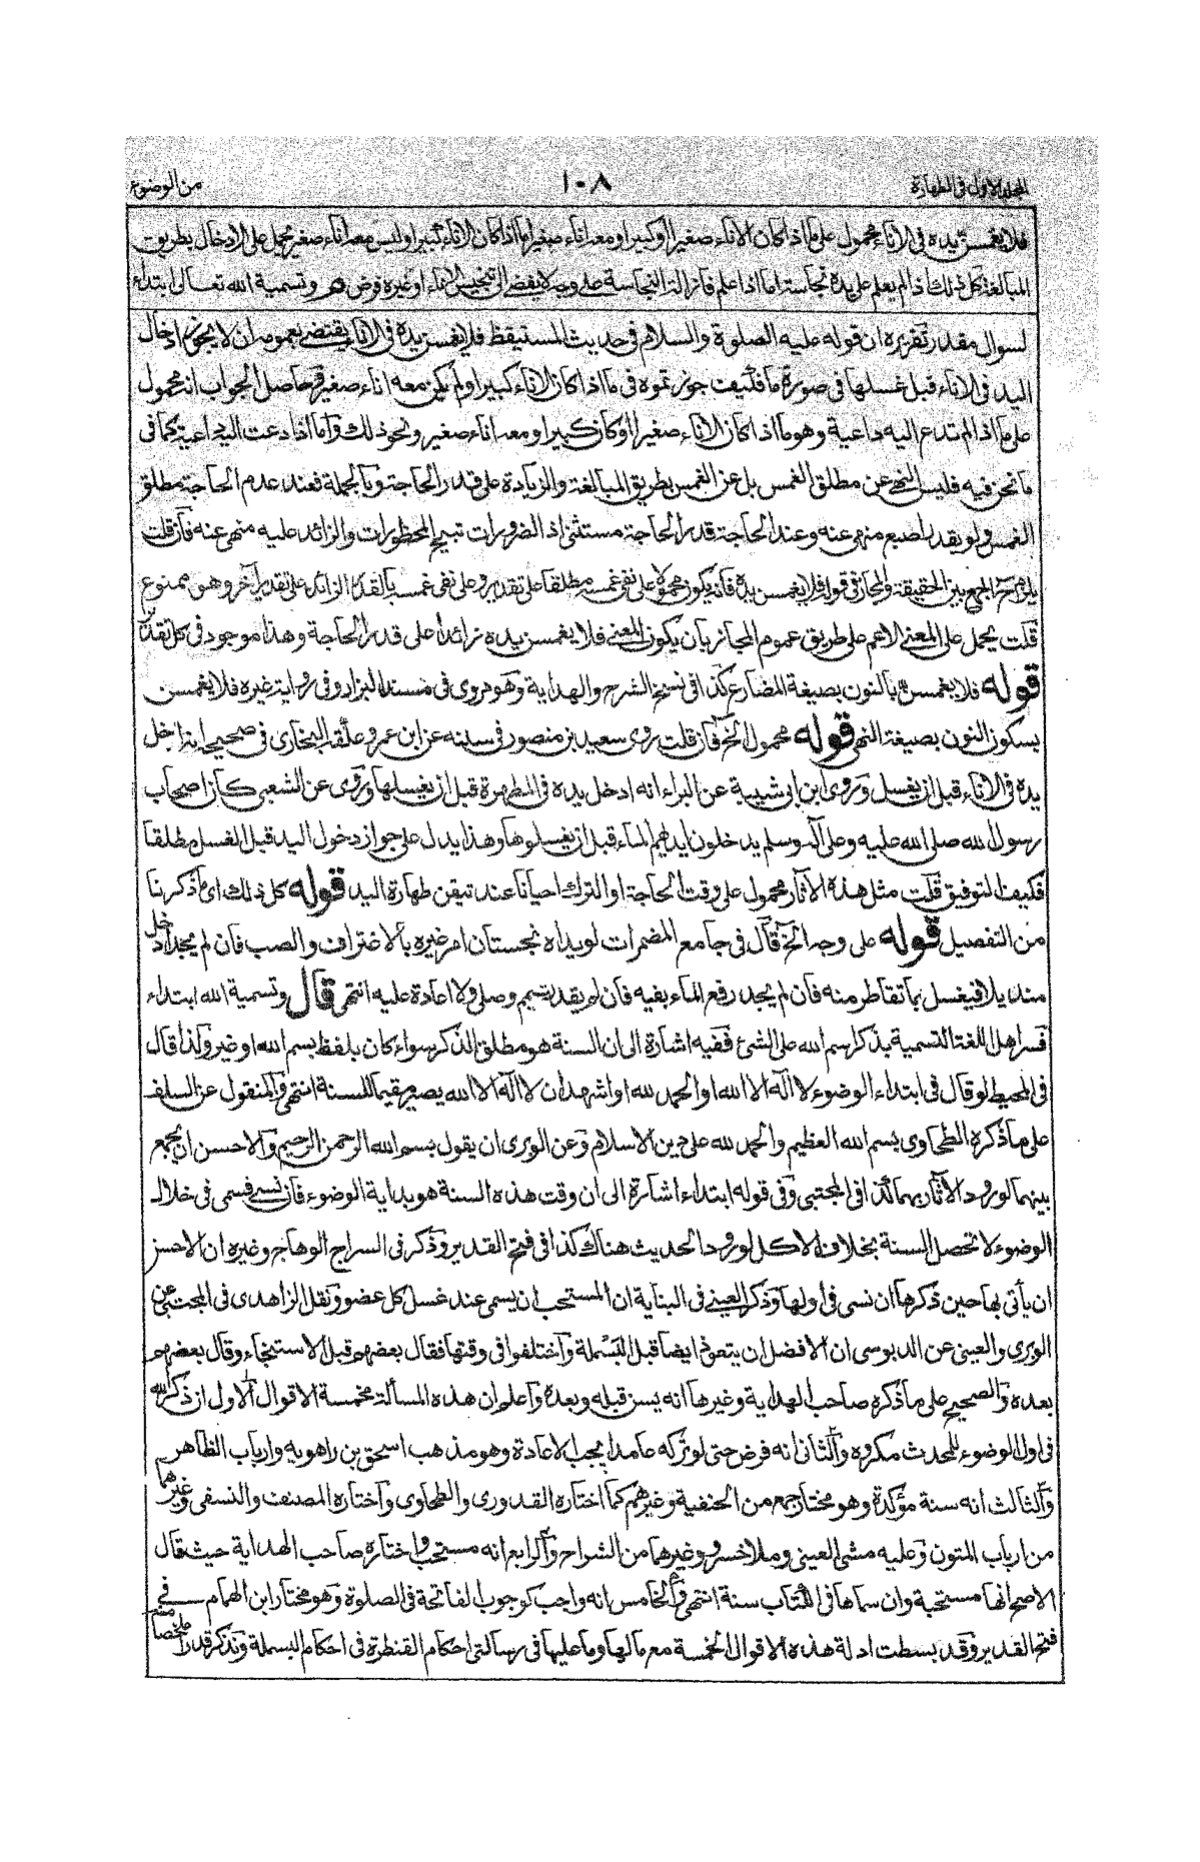 المجلد الاول في الطهارة ١٠٨ من الوضوء
فلا يغمسن يده في الاناء محمول على ما اذا كان الاناء صغيرا او كبيرا ومعه اناء صغير اما اذا كان الاناء كبيرا وليس معه اناء صغير يحمل على الادخال بطريق
المبالغة كل ذلك اذا لم يعلم على يده نجاسة اما اذا علم فازالة النجاسة على وجه لا يفضي الى تنجيس الاناء او غيره فرض هـ وتسمية الله تعالى ابتداء
لسوال مقدر تقريره ان قوله عليه الصلوة والسلام في حديث المستيقظ فلا يغمسن يده في الاناء يقتضي بعمومه ان لا يجوز ادخال
اليد في الاناء قبل غسلها في صورة ما فكيف جوزتموه في ما اذا كان الاناء كبيرا ولم يكن معه اناء صغير وحاصل الجواب انه محمول
على ما اذا لم تدع اليه داعية وهو ما اذا كان الاناء صغيرا او كان كبيرا ومعه اناء صغير ونحو ذلك واما اذا دعت اليه داعية كما في
ما نحن فيه فليس النهي عن مطلق الغمس بل عن الغمس بطريق المبالغة والزيادة على قدر الحاجة وبالجملة فعند عدم الحاجة مطلق
الغمس ولو بقدر اصبع منهي عنه وعند الحاجة قدر الحاجة مستثنى اذ الضرورات تبيح المحظورات والزائد عليه منهي عنه فان قلت
يلزم ح الجمع بين الحقيقة والمجاز في قوله فلا يغمسن يده فانه يكون محمولا على نفي غمسه مطلقا على تقدير وعلى نفي غمسه بالقدر الزائد على تقدير آخر وهو ممنوع
قلت يحمل على المعنى الاعم على طريق عموم المجاز بان يكون المعنى فلا يغمسن يده زائدا على قدر الحاجة وهذا موجود في كل تقدير
قوله فلا يغمسن بالنون بصيغة المضارع كذا في نسخ الشرح والهداية وهو مروي في مسند البزار وفي رواية غيره فلا يغمس
بسكون النون بصيغة النهي قوله محمول الخ فان قلت روى سعيد بن منصور في سننه عن ابن عمر وعلقه البخاري في صحيحه انه ادخل
يده في الاناء قبل ان يغسل وروى ابن ابي شيبة عن البراء انه ادخل يده في المطهرة قبل ان يغسلها وروى عن الشعبي كان اصحاب
رسول الله صلى الله عليه وعلى آله وسلم يدخلون ايديهم الماء قبل ان يغسلوها وهذا يدل على جواز دخول اليد قبل الغسل مطلقا
فكيف التوفيق قلت مثل هذه الآثار محمول على وقت الحاجة او الترك احيانا عند تيقن طهارة اليد قوله كل ذلك اي ما ذكرنا
من التفصيل قوله على وجه الخ قال في جامع المضمرات لو يداه نجستان امر غيره بالاغتراف والصب فان لم يجد ادخل
منديلا فيغسل بما تقاطر منه فان لم يجد رفع الماء بفيه فان لم يقدر تيمم وصلى ولا اعادة عليه انتهى قال وتسمية الله ابتداء
فسر اهل اللغة التسمية بذكر اسم الله على الشئ ففيه اشارة الى ان السنة هو مطلق الذكر سواء كان بلفظ بسم الله او غيره ولذا قال
في المحيط لو قال في ابتداء الوضوء لا اله الا الله او الحمد لله او اشهد ان لا اله الا الله يصير مقيما للسنة انتهى والمنقول عن السلف
على ما ذكره الطحاوي بسم الله العظيم والحمد لله على دين الاسلام وعن الوبري ان يقول بسم الله الرحمن الرحيم والاحسن ان يجمع
بينهما لورود الآثار بهما كذا في المجتبى وفي قوله ابتداء اشارة الى ان وقت هذه السنة هو بداية الوضوء فان نسي فسمى في خلال
الوضوء لا تحصل السنة بخلاف الاكل لورود الحديث هناك كذا في فتح القدير وذكر في السراج الوهاج وغيره ان الاحسن
ان يأتي بها حين ذكرها ان نسي في اولها وذكر العيني في البناية ان المستحب ان يسمى عند غسل كل عضو ونقل الزاهدي في المجتبى عن
الوبري والعيني عن الدبوسي ان الافضل ان يتعوذ ايضا قبل البسملة واختلفوا في وقتها فقال بعضهم قبل الاستنجاء وقال بعضهم
بعده والصحيح على ما ذكره صاحب الهداية وغيرها انه يسن قبله وبعده واعلم ان هذه المسألة مخمسة الاقوال الاول ان ذكر الله
في اول الوضوء للمحدث مكروه والثاني انه فرض حتى لو تركه عامدا يجب الاعادة وهو مذهب اسحق بن راهويه وارباب الظاهر
والثالث انه سنة مؤكدة وهو مختار جمع من الحنفية وغيرهم كما اختاره القدوري والطحاوي واختاره المصنف والنسفي وغيرهما
من ارباب المتون وعليه مشى العيني وملا خسرو وغيرهما من الشراح والرابع انه مستحب واختاره صاحب الهداية حيث قال
الاصح انها مستحبة وان سماها في الكتاب سنة انتهى والخامس انه واجب كوجوب الفاتحة في الصلوة وهو مختار ابن الهمام في
فتح القدير وقد بسطت ادلة هذه الاقوال الخمسة مع مالها وما عليها في رسالتي احكام القنطرة في احكام البسملة ونذكر قدرا منه ملخصا